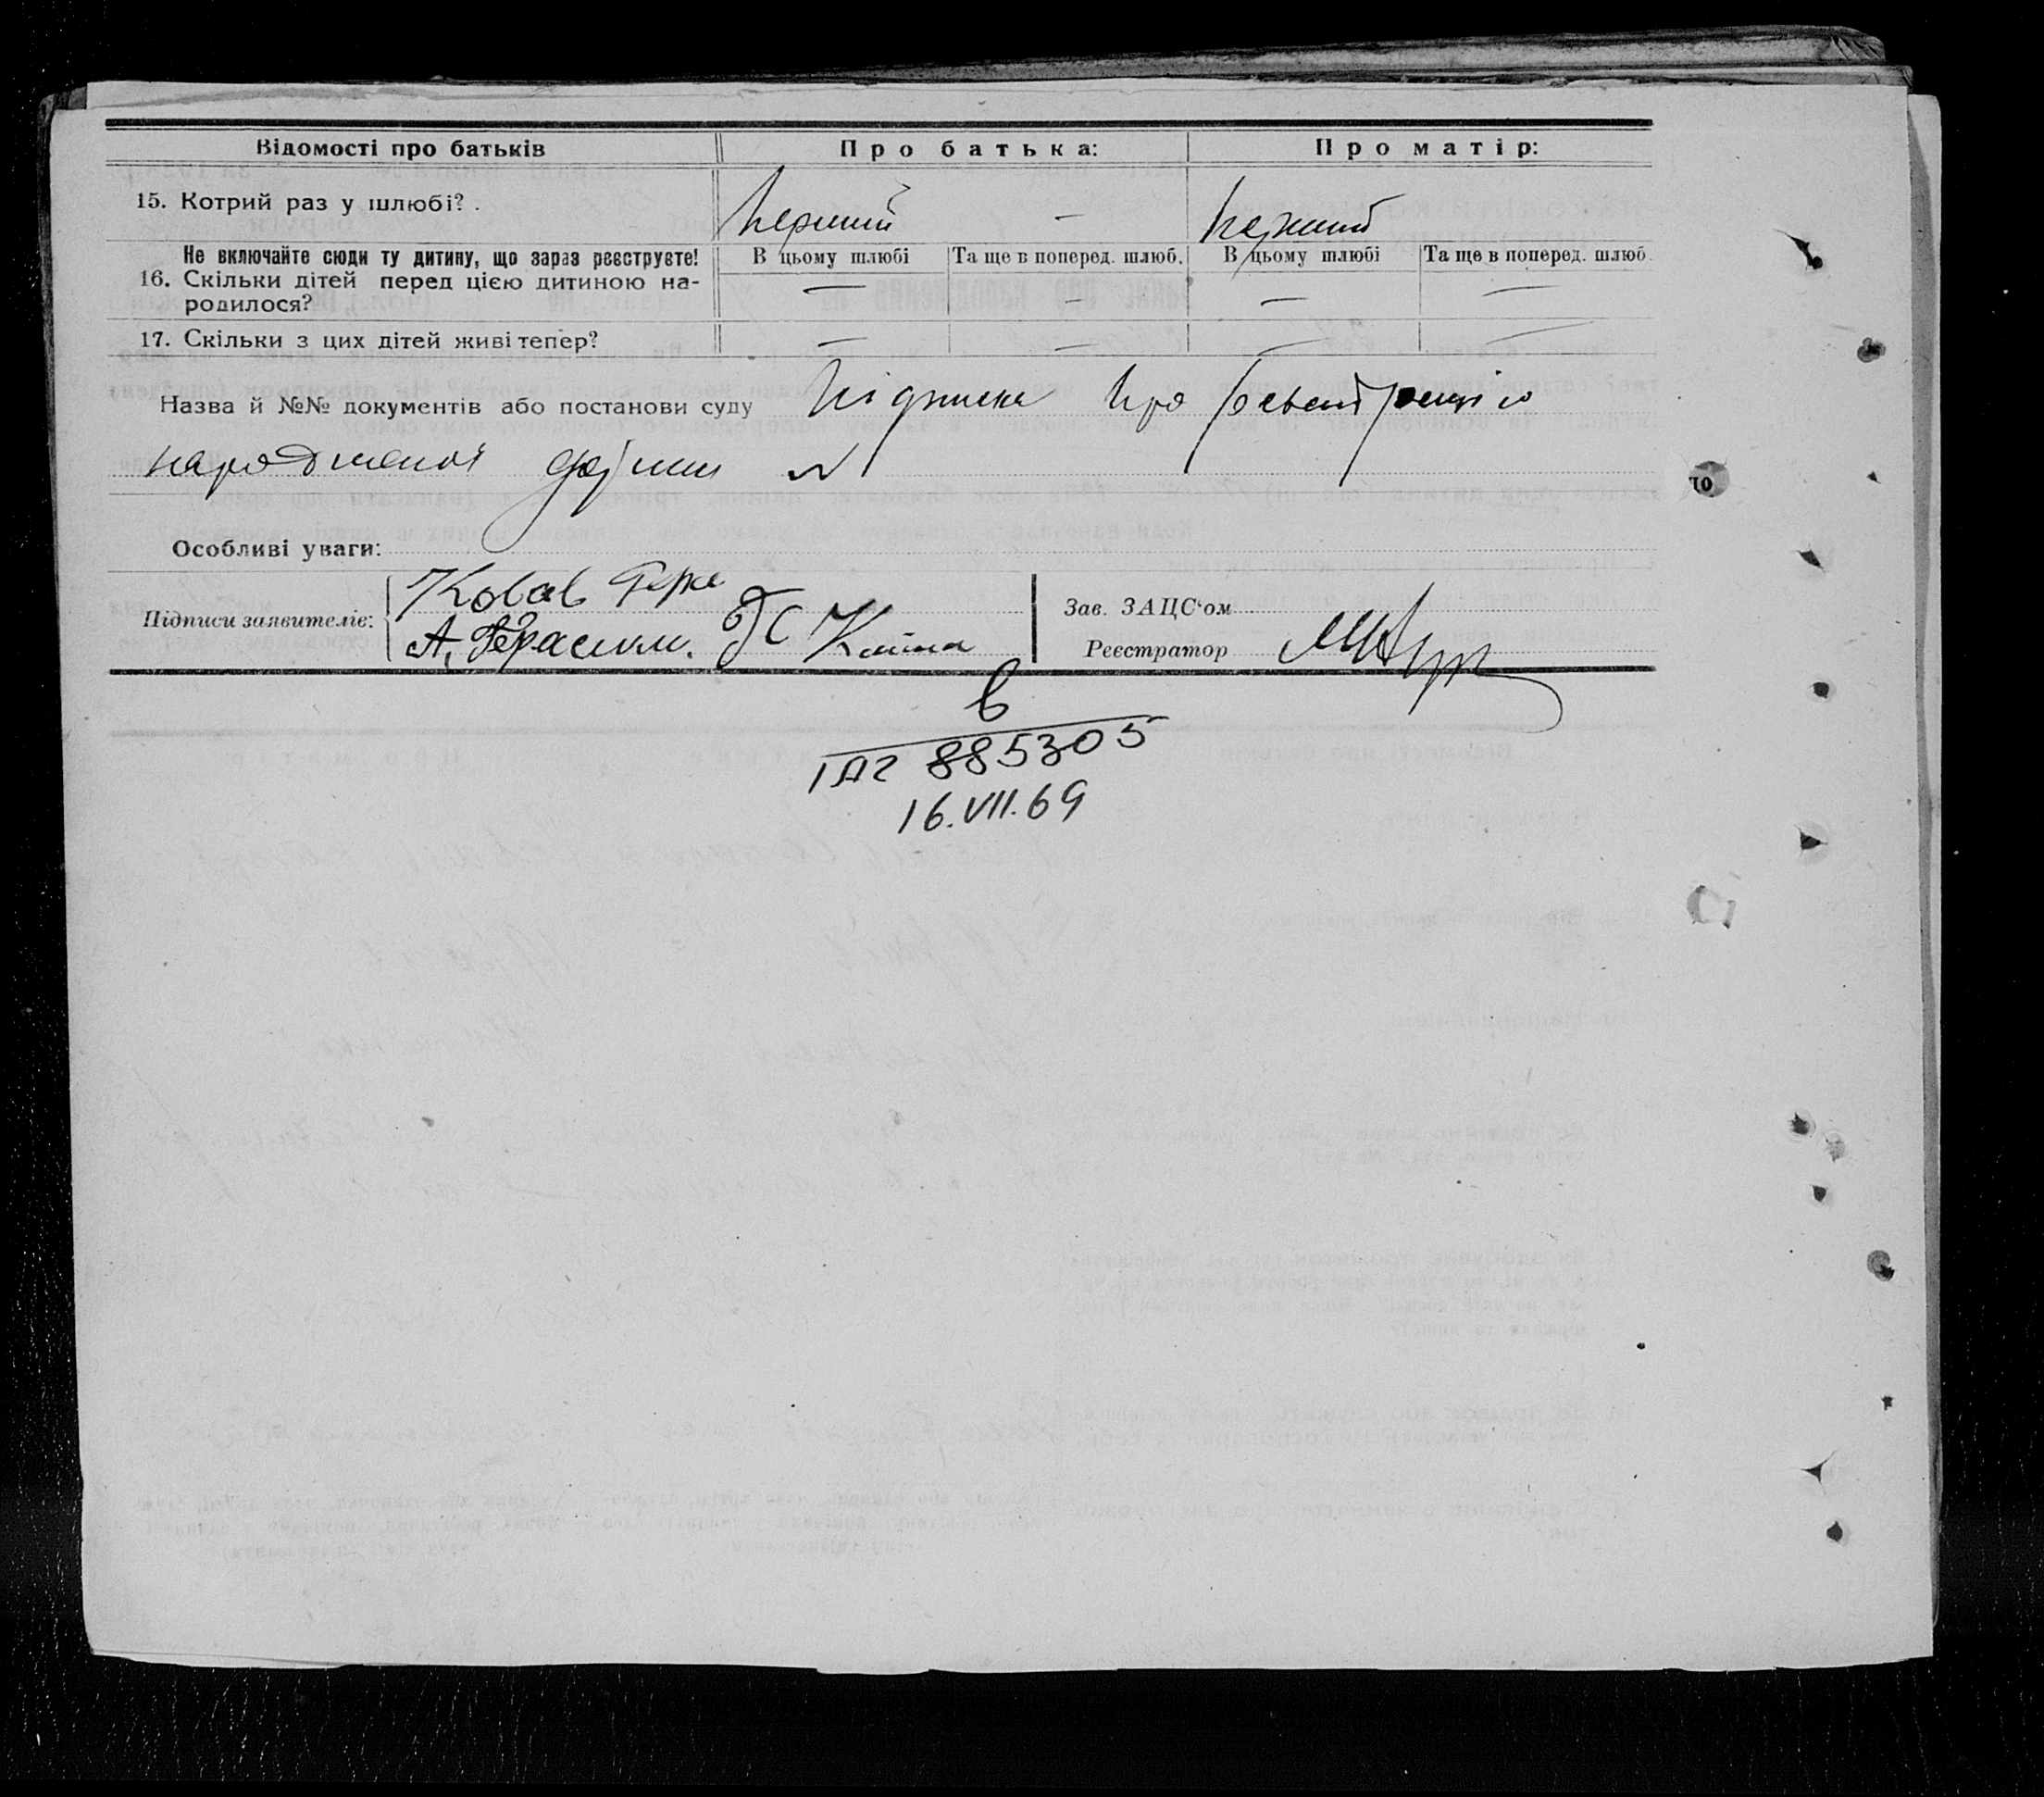 Відомості про батьків
Про батька:
Про матір:
15. Котрий раз у шлюбі?
Перший —
Перший
Не включайте сюди ту дитину, що зараз реєструєте!
В цьому шлюбі
Та ще в поперед. шлюб.
В цьому шлюбі
Та ще в поперед. шлюб.
16. Скільки дітей перед цією дитиною на-
родилося?
— — — —
17. Скільки з цих дітей живі тепер?
— — — —
Назва й №№ документів або постанови суду Підписка про
народженої
Особливі уваги:
Підписи заявителів:
Ковав
А. Герасим.
Зав. ЗАЦС'ом
Реєстратор
885305
16.VII.69